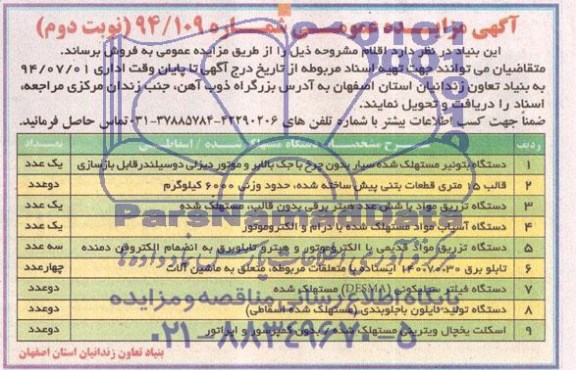 آگهی مزایده عمومی شماره ۹۴/۱۰۹ (نوبت دوم)
این بنیاد در نظر دارد اقلام مشروحه ذیل را از طریق مزایده عمومی به فروش برساند.
متقاضیان می توانند جهت تهیه اسناد مربوطه از تاریخ درج آگهی تا پایان وقت اداری ۹۴/۰۷/۰۱
به بنیاد تعاون زندانیان استان اصفهان به آدرس بزرگراه ذوب آهن، جنب زندان مرکزی مراجعه،
اسناد را دریافت و تحویل نمایند.
ضمناً جهت کسب اطلاعات بیشتر با شماره تلفن های ۲۲۲۹۰۲۰۶-۳۷۸۸۵۷۸۲-۰۳۱ تماس حاصل فرمائید.
ردیف شرح مشخصات دستگاه مستهلک شده / اسقاطی تعداد
۱ دستگاه بتونیر مستهلک شده سیار بدون چرخ با جک بالابر و موتور دیزلی دوسیلندر قابل بازسازی یک عدد
۲ قالب ۱۵ متری قطعات بتنی پیش ساخته شده، حدود وزنی ۶۰۰۰ کیلوگرم دوعدد
۳ دستگاه تزریق مواد با شش عدد هیتر برقی بدون قالب، مستهلک شده یک عدد
۴ دستگاه آسیاب مواد مستهلک شده با درام و الکتروموتور یک عدد
۵ دستگاه تزریق مواد قدیمی با الکتروموتور و هیتر و تابلوبری به انضمام الکتروفن دمنده سه عدد
۶ تابلو برق ایستاده با متعلقات مربوطه، متعلق به ماشین آلات چهارعدد
۷ دستگاه فیلتر سیلیکونی (DESMA) مستهلک شده دوعدد
۸ دستگاه تولید نایلون باجلوبندی (مستهلک شده اسقاطی) دوعدد
۹ اسکلت یخچال ویترینی مستهلک شده / بدون کمپرسور و اپراتور دوعدد
بنیاد تعاون زندانیان استان اصفهان
ParsNamadData
پایگاه اطلاع رسانی مناقصه و مزایده
۰۲۱-۸۸۳۴۹۶۷۰-۵